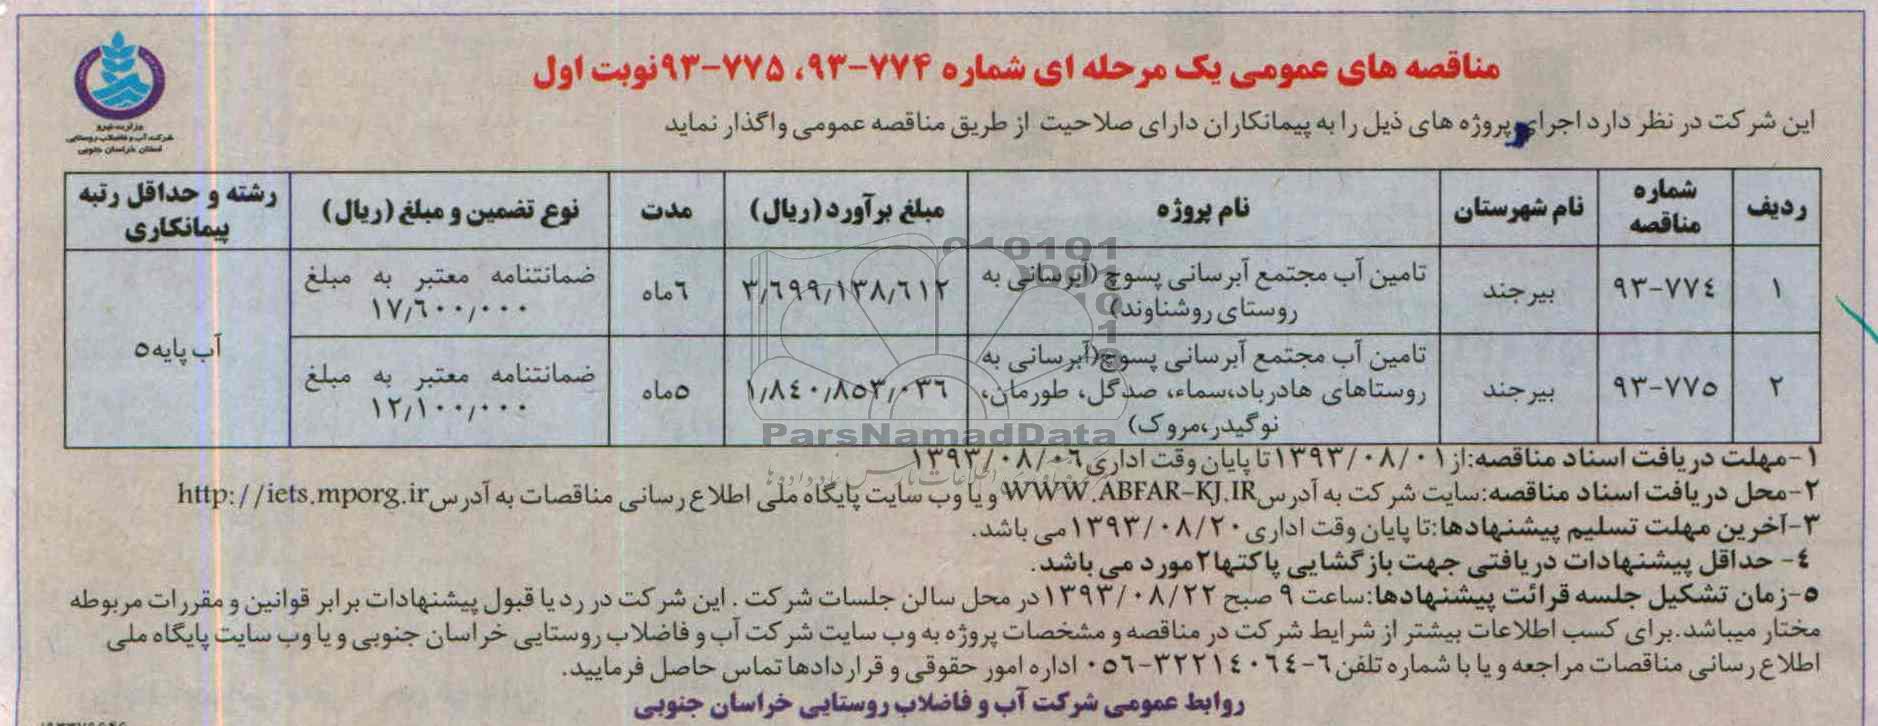 وزارت نیرو
شرکت آب و فاضلاب روستایی
استان خراسان جنوبی
مناقصه های عمومی یک مرحله ای شماره ۷۷۴-۹۳، ۷۷۵-۹۳نوبت اول
این شرکت در نظر دارد اجرای پروژه های ذیل را به پیمانکاران دارای صلاحیت از طریق مناقصه عمومی واگذار نماید
ردیف | شماره مناقصه | نام شهرستان | نام پروژه | مبلغ برآورد (ریال) | مدت | نوع تضمین و مبلغ (ریال) | رشته و حداقل رتبه پیمانکاری
۱ | ۷۷۴-۹۳ | بیرجند | تامین آب مجتمع آبرسانی پسوچ (آبرسانی به روستای روشناوند) | ۳٫۶۹۹٫۱۳۸٫۶۱۲ | ۶ماه | ضمانتنامه معتبر به مبلغ ۱۷٫۶۰۰٫۰۰۰ | آب پایه۵
۲ | ۷۷۵-۹۳ | بیرجند | تامین آب مجتمع آبرسانی پسوچ(آبرسانی به روستاهای هادرباد،سماء، صدگل، طورمان، نوگیدر،مروک) | ۱٫۸۴۰٫۸۵۳٫۰۳۶ | ۵ماه | ضمانتنامه معتبر به مبلغ ۱۲٫۱۰۰٫۰۰۰
ParsNamadData
۱-مهلت دریافت اسناد مناقصه:از۱۳۹۳/۰۸/۰۱ تا پایان وقت اداری۱۳۹۳/۰۸/۰۶
۲-محل دریافت اسناد مناقصه:سایت شرکت به آدرسWWW.ABFAR-KJ.IR و یا وب سایت پایگاه ملی اطلاع رسانی مناقصات به آدرسhttp://iets.mporg.ir
۳-آخرین مهلت تسلیم پیشنهادها:تا پایان وقت اداری۱۳۹۳/۰۸/۲۰می باشد.
۴- حداقل پیشنهادات دریافتی جهت بازگشایی پاکتها۲مورد می باشد.
۵-زمان تشکیل جلسه قرائت پیشنهادها:ساعت ۹ صبح ۱۳۹۳/۰۸/۲۲در محل سالن جلسات شرکت . این شرکت در رد یا قبول پیشنهادات برابر قوانین و مقررات مربوطه
مختار میباشد.برای کسب اطلاعات بیشتر از شرایط شرکت در مناقصه و مشخصات پروژه به وب سایت شرکت آب و فاضلاب روستایی خراسان جنوبی و یا وب سایت پایگاه ملی
اطلاع رسانی مناقصات مراجعه و یا با شماره تلفن۶-۳۲۲۱۴۰۶۴-۰۵۶ اداره امور حقوقی و قراردادها تماس حاصل فرمایید.
روابط عمومی شرکت آب و فاضلاب روستایی خراسان جنوبی